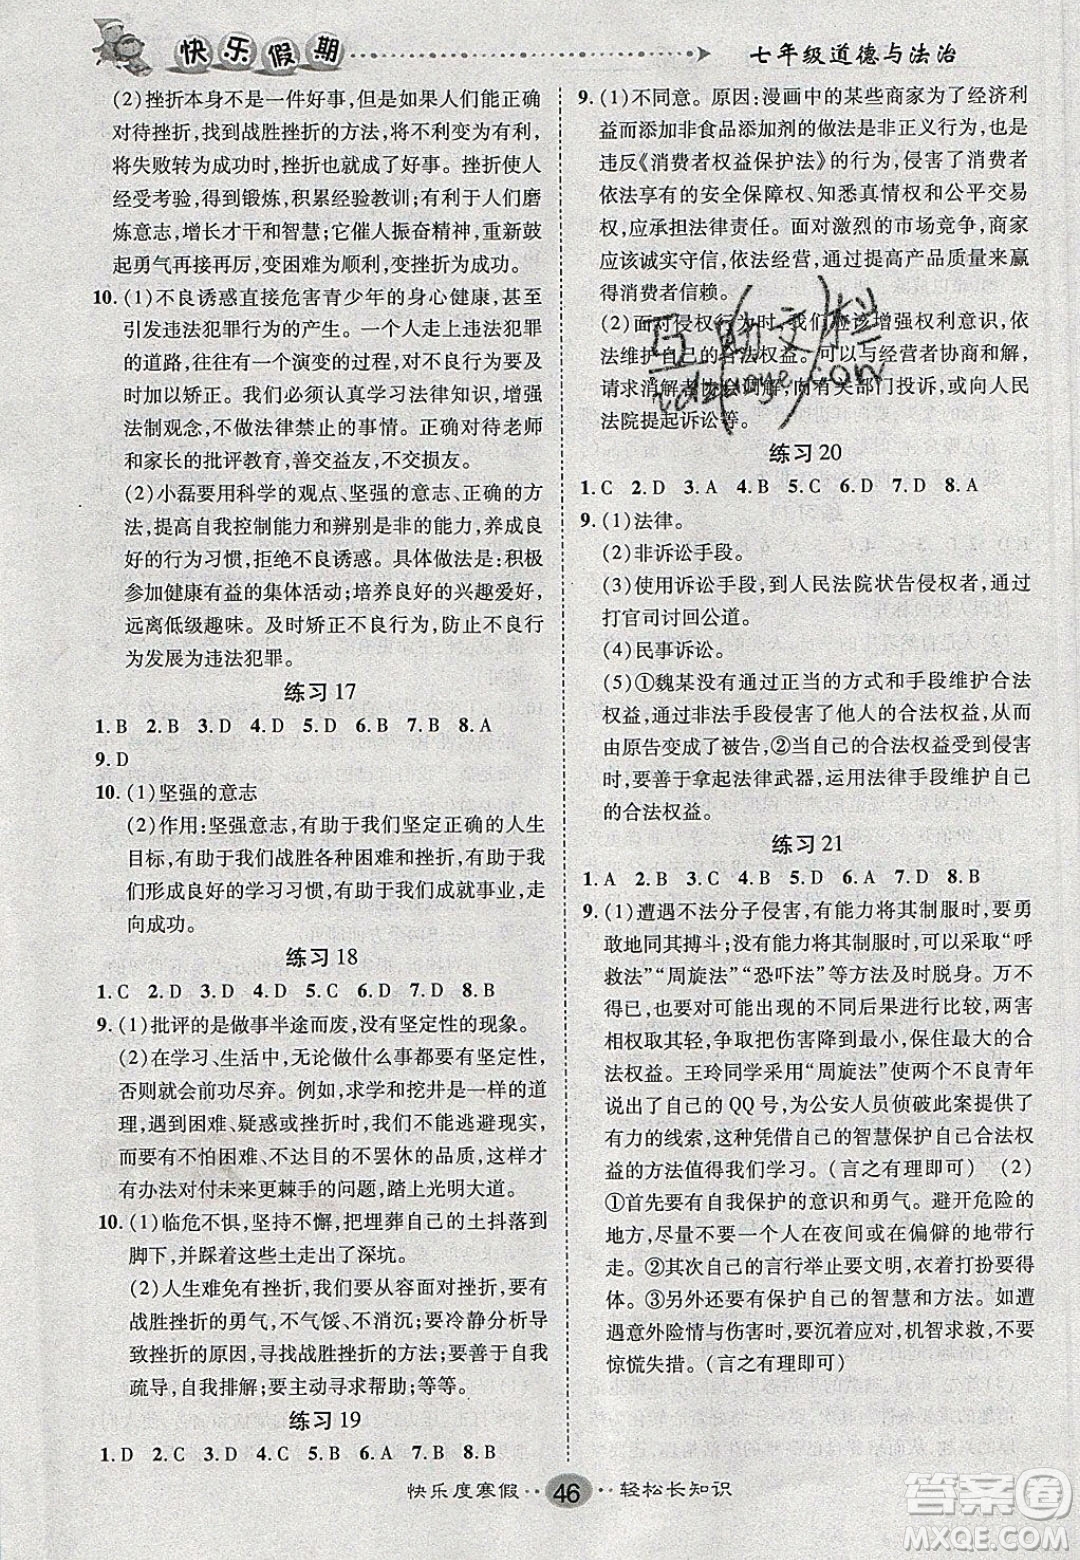 快乐假期
七年级道德与法治
(2)挫折本身不是一件好事,但是如果人们能正确
对待挫折,找到战胜挫折的方法,将不利变为有利,
将失败转为成功时,挫折就成了好事。挫折使人
经受考验,得到锻炼,积累经验教训;它有利于人们磨
炼意志,增长才干和智慧;它催人振奋精神,重新鼓
起勇气再接再厉,变困难为顺利,变挫折为成功。
10. (1)不良诱惑直接危害青少年的身心健康,甚至
引发违法犯罪行为的产生。一个人走上违法犯罪
的道路,往往有一个演变的过程,对不良行为要
及时矫正。我们必须认真学习法律知识,增强
法制观念,不做法律禁止的事情。正确对待老师
和家长的批评教育,善交益友,不交损友。
(2)小磊要用科学的观点、坚强的意志、正确的方
法,提高自我控制能力和辨别是非的能力,养成良
好的行为习惯,拒绝不良诱惑。具体做法是:积极
参加健康有益的集体活动;培养良好的兴趣爱好,
远离低级趣味。及时矫正不良行为,防止不良行
为发展为违法犯罪。
练习17
1. B 2. B 3. D 4. D 5. D 6. D 7. B 8. A
9. D
10. (1)坚强的意志
(2)作用:坚强意志,有助于我们坚定正确的人生
目标,有助于我们战胜各种困难和挫折,有助于我
们形成良好的学习习惯,有助于我们成就事业,走
向成功。
练习18
1. C 2. D 3. D 4. D 5. C 6. D 7. D 8. B
9. (1)批评的是做事半途而废,没有坚定性的现象。
(2)在学习、生活中,无论做什么事都要有坚定性,
否则就会前功尽弃。例如,求学和挖井是一样的道
理,遇到困难或挫折时,我们都不应逃避现实,而
要有不怕困难、不达目的不罢休的品质,这样才会
有办法对付未来更棘手的问题,踏上光明大道。
10. (1)临危不惧,坚持不懈,把埋葬自己的土抖落到
脚下,并踩着这些土走出了深坑。
(2)人生难免有挫折,我们要从容面对挫折,要有
战胜挫折的勇气,不气馁、不消沉;要冷静分析导
致挫折的原因,寻找战胜挫折的方法;要善于自我
疏导,自我排解;要主动寻求帮助;等等。
练习19
1. D 2. C 3. D 4. C 5. B 6. A 7. B 8. B
9. (1)不同意。原因:漫画中的某些商家为了经济利
益而添加非食品添加剂的做法是非正义行为,也是
违反《消费者权益保护法》的行为,侵害了消费者
依法享有的安全保障权、知悉真情权和公平交易
权,应承担法律责任。面对激烈的市场竞争,商家
应该诚实守信,依法经营,通过提高产品质量来赢
得消费者信赖。
(2)面对侵权行为时,我们应该增强权利意识,依
法维护自己的合法权益。可以与经营者协商和解,
请求消解者协会调解,向有关部门投诉,或向人民
法院提起诉讼等。
练习20
1. C 2. D 3. A 4. B 5. D 6. D 7. D 8. A
9. (1)法律。
(2)非诉讼手段。
(3)使用诉讼手段,到人民法院状告侵权者,通过
打官司讨回公道。
(4)民事诉讼。
(5)①魏某没有通过正当的方式和手段维护合法
权益,通过非法手段侵害了他人的合法权益,从而
由原告变成了被告,②当自己的合法权益受到侵害
时,要善于拿起法律武器,运用法律手段维护自己
的合法权益。
练习21
1. A 2. B 3. C 4. D 5. D 6. C 7. D 8. B
9. (1)遭遇不法分子侵害,有能力将其制服时,要勇
敢地同其搏斗;没有能力将其制服时,可以采取“呼
救法”“周旋法”“恐吓法”等方法及时脱身。万不
得已时,对可能出现的不同后果进行比较,两害
相权取其轻,争取把伤害减少到最小,保住最大的
合法权益。王玲同学采用“周旋法”,与不良青年
说出了自己的QQ号,为公安人员侦破此案提供了
有力的线索,这种凭借自己的智慧保护自己合法权
益的方法值得我们学习。(言之有理即可) (2)
①首先要有自我保护的意识和勇气。避开危险的
地方,尽量不要一个人在夜间或在偏僻的地带穿
行。②注意自己的言行举止要文明,衣着打扮要得
体。③还要有保护自己的智慧和方法。如遭
遇意外险情与伤害时,要沉着应对,机智求救,不要
惊慌失措。(言之有理即可)
快乐度寒假··46··轻松长知识
答案圈
MXQE.COM